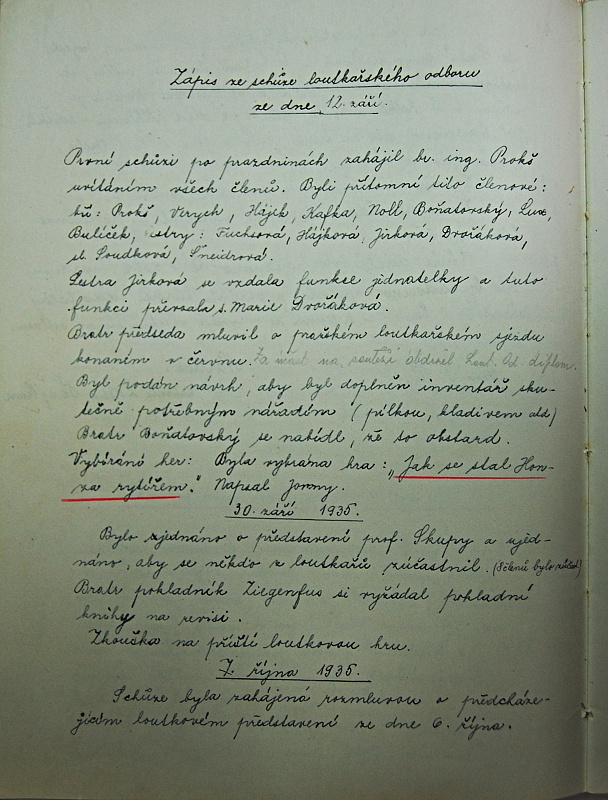 Zápis ze schůze loutkářského odboru
ze dne 12. září.
První schůzi po prazdninách zahájil br. ing. Prokš
uvítáním všech členů. Byli přítomni tito členové:
bři: Prokš, Verych, Hájík, Kafka, Noll, Boňatovský, Lux,
Bulíček, sestry: Fuchsová, Hájková, Jirková, Dvořáková,
sl. Soudková, Šneidrová.
Sestra Jirková se vzdala funkce jednatelky a tuto
funkci převzala s. Marie Dvořáková.
Bratr předseda mluvil o pražském loutkářském sjezdu
konaném v červnu. Za účast na soutěži obdržel Lout. Od. diplom.
Byl podán návrh, aby byl doplněn inventář sku-
tečně potřebným nářadím (pilkou, kladivem atd)
Bratr Boňatovský se nabídl, že to obstará.
Vybírání her: Byla vybrána hra: „Jak se stal Hon-
za rytířem." Napsal Jonny.
30. září 1935.
Bylo zjednáno o představení prof. Skupy a ujed-
náno, aby se někdo z loutkařů zúčastnil. (5členů bylo
Bratr pokladník Ziegenfus si vyžádal pokladní
knihy na revisi.
Zkouška na příští loutkovou hru.
7. října 1935.
Schůze byla zahájená rozmluvou o předcháze-
jícím loutkovém představení ze dne 6. října.